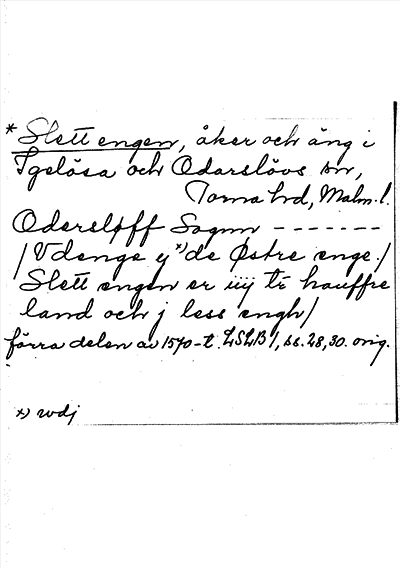 * Slett engen, åker och äng i
Igelösa och Odarslövs snr,
Torna hd, Malm. l.
Odersløff Sognn - - - - - - -
/ Vdenge y *) de Østre enge. /
Slett engen er iiij tr hauffre
land och j less engh /
förra delen av 1570-t. LSLB 1, ss. 28, 30. orig.
*) wdj